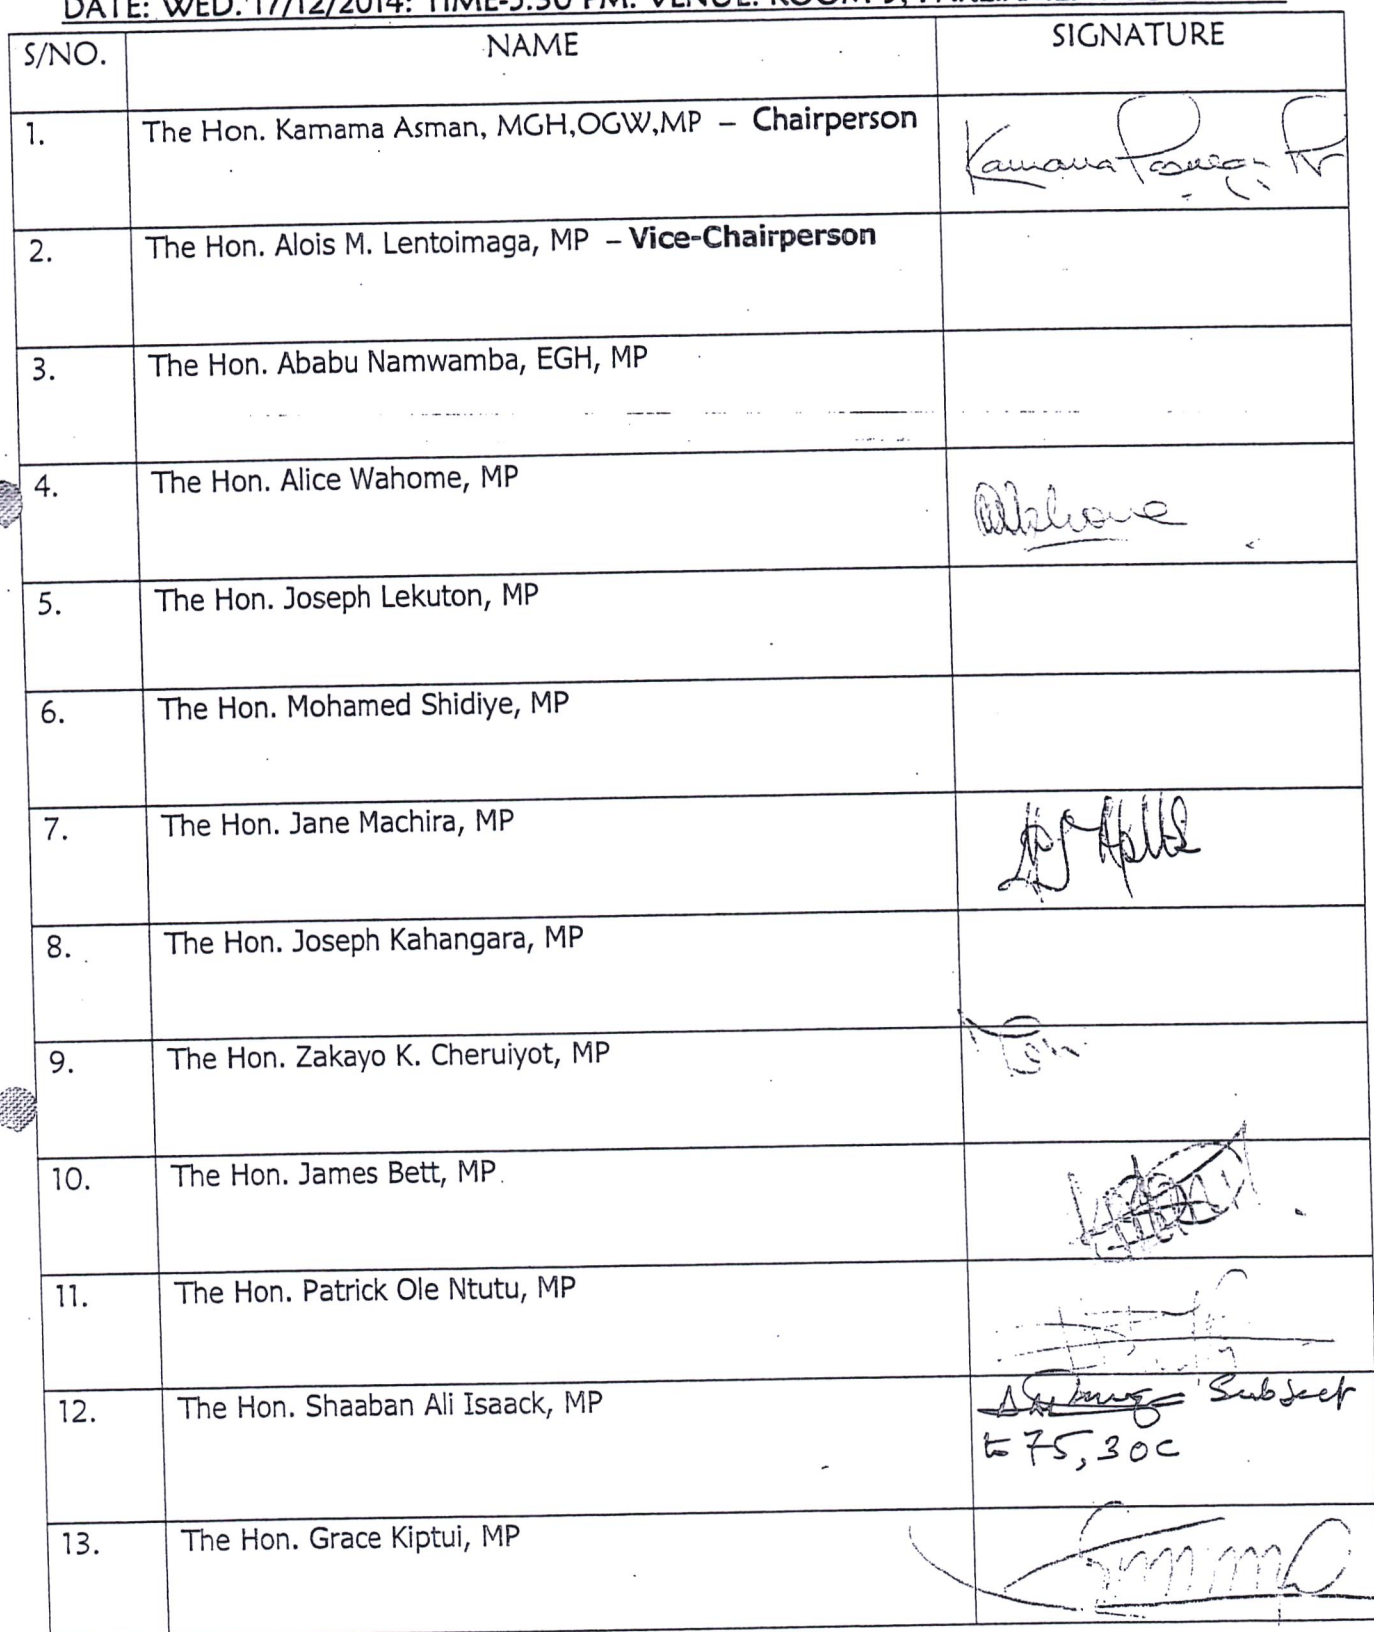 DATE: WED. 17/12/2014: TIME-5.30 PM: VENUE: ROOM 9,
S/NO. NAME SIGNATURE
1. The Hon. Kamama Asman, MGH,OGW,MP – Chairperson Kamama
2. The Hon. Alois M. Lentoimaga, MP – Vice-Chairperson
3. The Hon. Ababu Namwamba, EGH, MP
4. The Hon. Alice Wahome, MP
5. The Hon. Joseph Lekuton, MP
6. The Hon. Mohamed Shidiye, MP
7. The Hon. Jane Machira, MP
8. The Hon. Joseph Kahangara, MP
9. The Hon. Zakayo K. Cheruiyot, MP
10. The Hon. James Bett, MP.
11. The Hon. Patrick Ole Ntutu, MP
12. The Hon. Shaaban Ali Isaack, MP Subject
to 75, 30c
13. The Hon. Grace Kiptui, MP